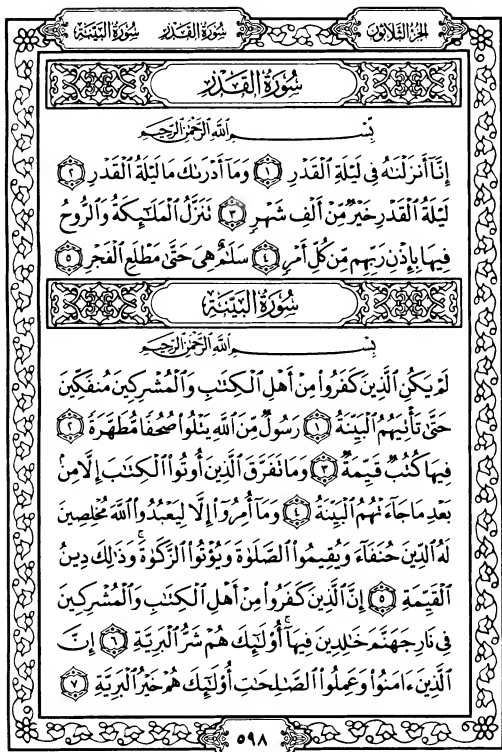 سُورَةُ البَيِّنَةِ سُورَةُ القَدْرِ الجُزءُ الثَّلاثُونَ
سُورَةُ القَدْرِ
بِسْمِ اللَّهِ الرَّحْمَٰنِ الرَّحِيمِ
إِنَّآ أَنزَلْنَـٰهُ فِى لَيْلَةِ ٱلْقَدْرِ ١ وَمَآ أَدْرَىٰكَ مَا لَيْلَةُ ٱلْقَدْرِ ٢
لَيْلَةُ ٱلْقَدْرِ خَيْرٌ مِّنْ أَلْفِ شَهْرٍ ٣ تَنَزَّلُ ٱلْمَلَـٰٓئِكَةُ وَٱلرُّوحُ
فِيهَا بِإِذْنِ رَبِّهِم مِّن كُلِّ أَمْرٍ ٤ سَلَـٰمٌ هِىَ حَتَّىٰ مَطْلَعِ ٱلْفَجْرِ ٥
سُورَةُ البَيِّنَةِ
بِسْمِ اللَّهِ الرَّحْمَٰنِ الرَّحِيمِ
لَمْ يَكُنِ ٱلَّذِينَ كَفَرُوا۟ مِنْ أَهْلِ ٱلْكِتَـٰبِ وَٱلْمُشْرِكِينَ مُنفَكِّينَ
حَتَّىٰ تَأْتِيَهُمُ ٱلْبَيِّنَةُ ١ رَسُولٌ مِّنَ ٱللَّهِ يَتْلُوا۟ صُحُفًا مُّطَهَّرَةً ٢
فِيهَا كُتُبٌ قَيِّمَةٌ ٣ وَمَا تَفَرَّقَ ٱلَّذِينَ أُوتُوا۟ ٱلْكِتَـٰبَ إِلَّا مِنۢ
بَعْدِ مَا جَآءَتْهُمُ ٱلْبَيِّنَةُ ٤ وَمَآ أُمِرُوٓا۟ إِلَّا لِيَعْبُدُوا۟ ٱللَّهَ مُخْلِصِينَ
لَهُ ٱلدِّينَ حُنَفَآءَ وَيُقِيمُوا۟ ٱلصَّلَوٰةَ وَيُؤْتُوا۟ ٱلزَّكَوٰةَ ۚ وَذَٰلِكَ دِينُ
ٱلْقَيِّمَةِ ٥ إِنَّ ٱلَّذِينَ كَفَرُوا۟ مِنْ أَهْلِ ٱلْكِتَـٰبِ وَٱلْمُشْرِكِينَ
فِى نَارِ جَهَنَّمَ خَـٰلِدِينَ فِيهَآ ۚ أُو۟لَـٰٓئِكَ هُمْ شَرُّ ٱلْبَرِيَّةِ ٦ إِنَّ
ٱلَّذِينَ ءَامَنُوا۟ وَعَمِلُوا۟ ٱلصَّـٰلِحَـٰتِ أُو۟لَـٰٓئِكَ هُمْ خَيْرُ ٱلْبَرِيَّةِ ٧
٥٩٨